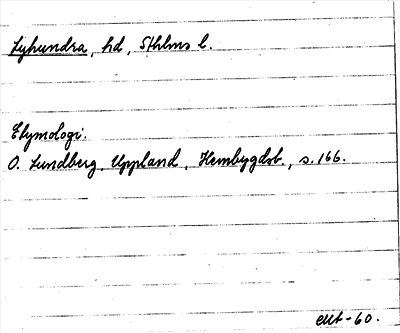 Lyhundra, hd, Sthlms l.
Etymologi.
O. Lundberg, Uppland, Hembygdsb., s. 166.
-60.